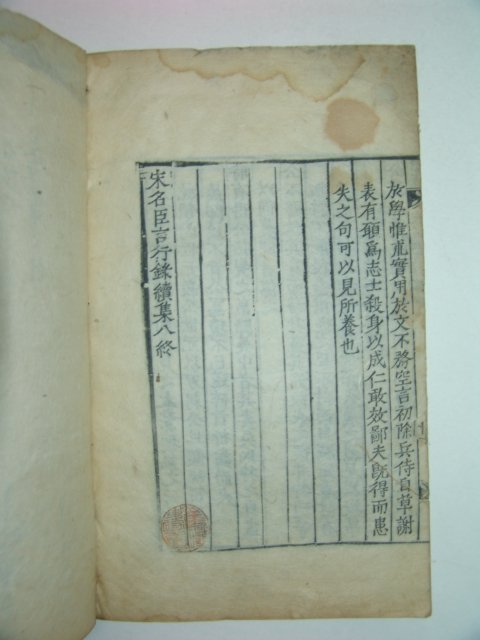 於學惟應實用於文不務空言初除兵侍自草謝
表有頭爲志士殺身以成仁敢效鄙夫旣得而患
失之句可以見所養也
宋名臣言行錄續集八終